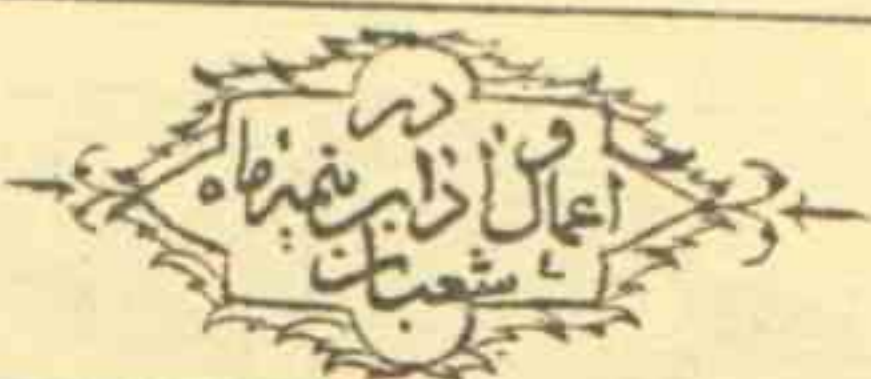 در
اعمال و آداب نیمه ماه
شعبان